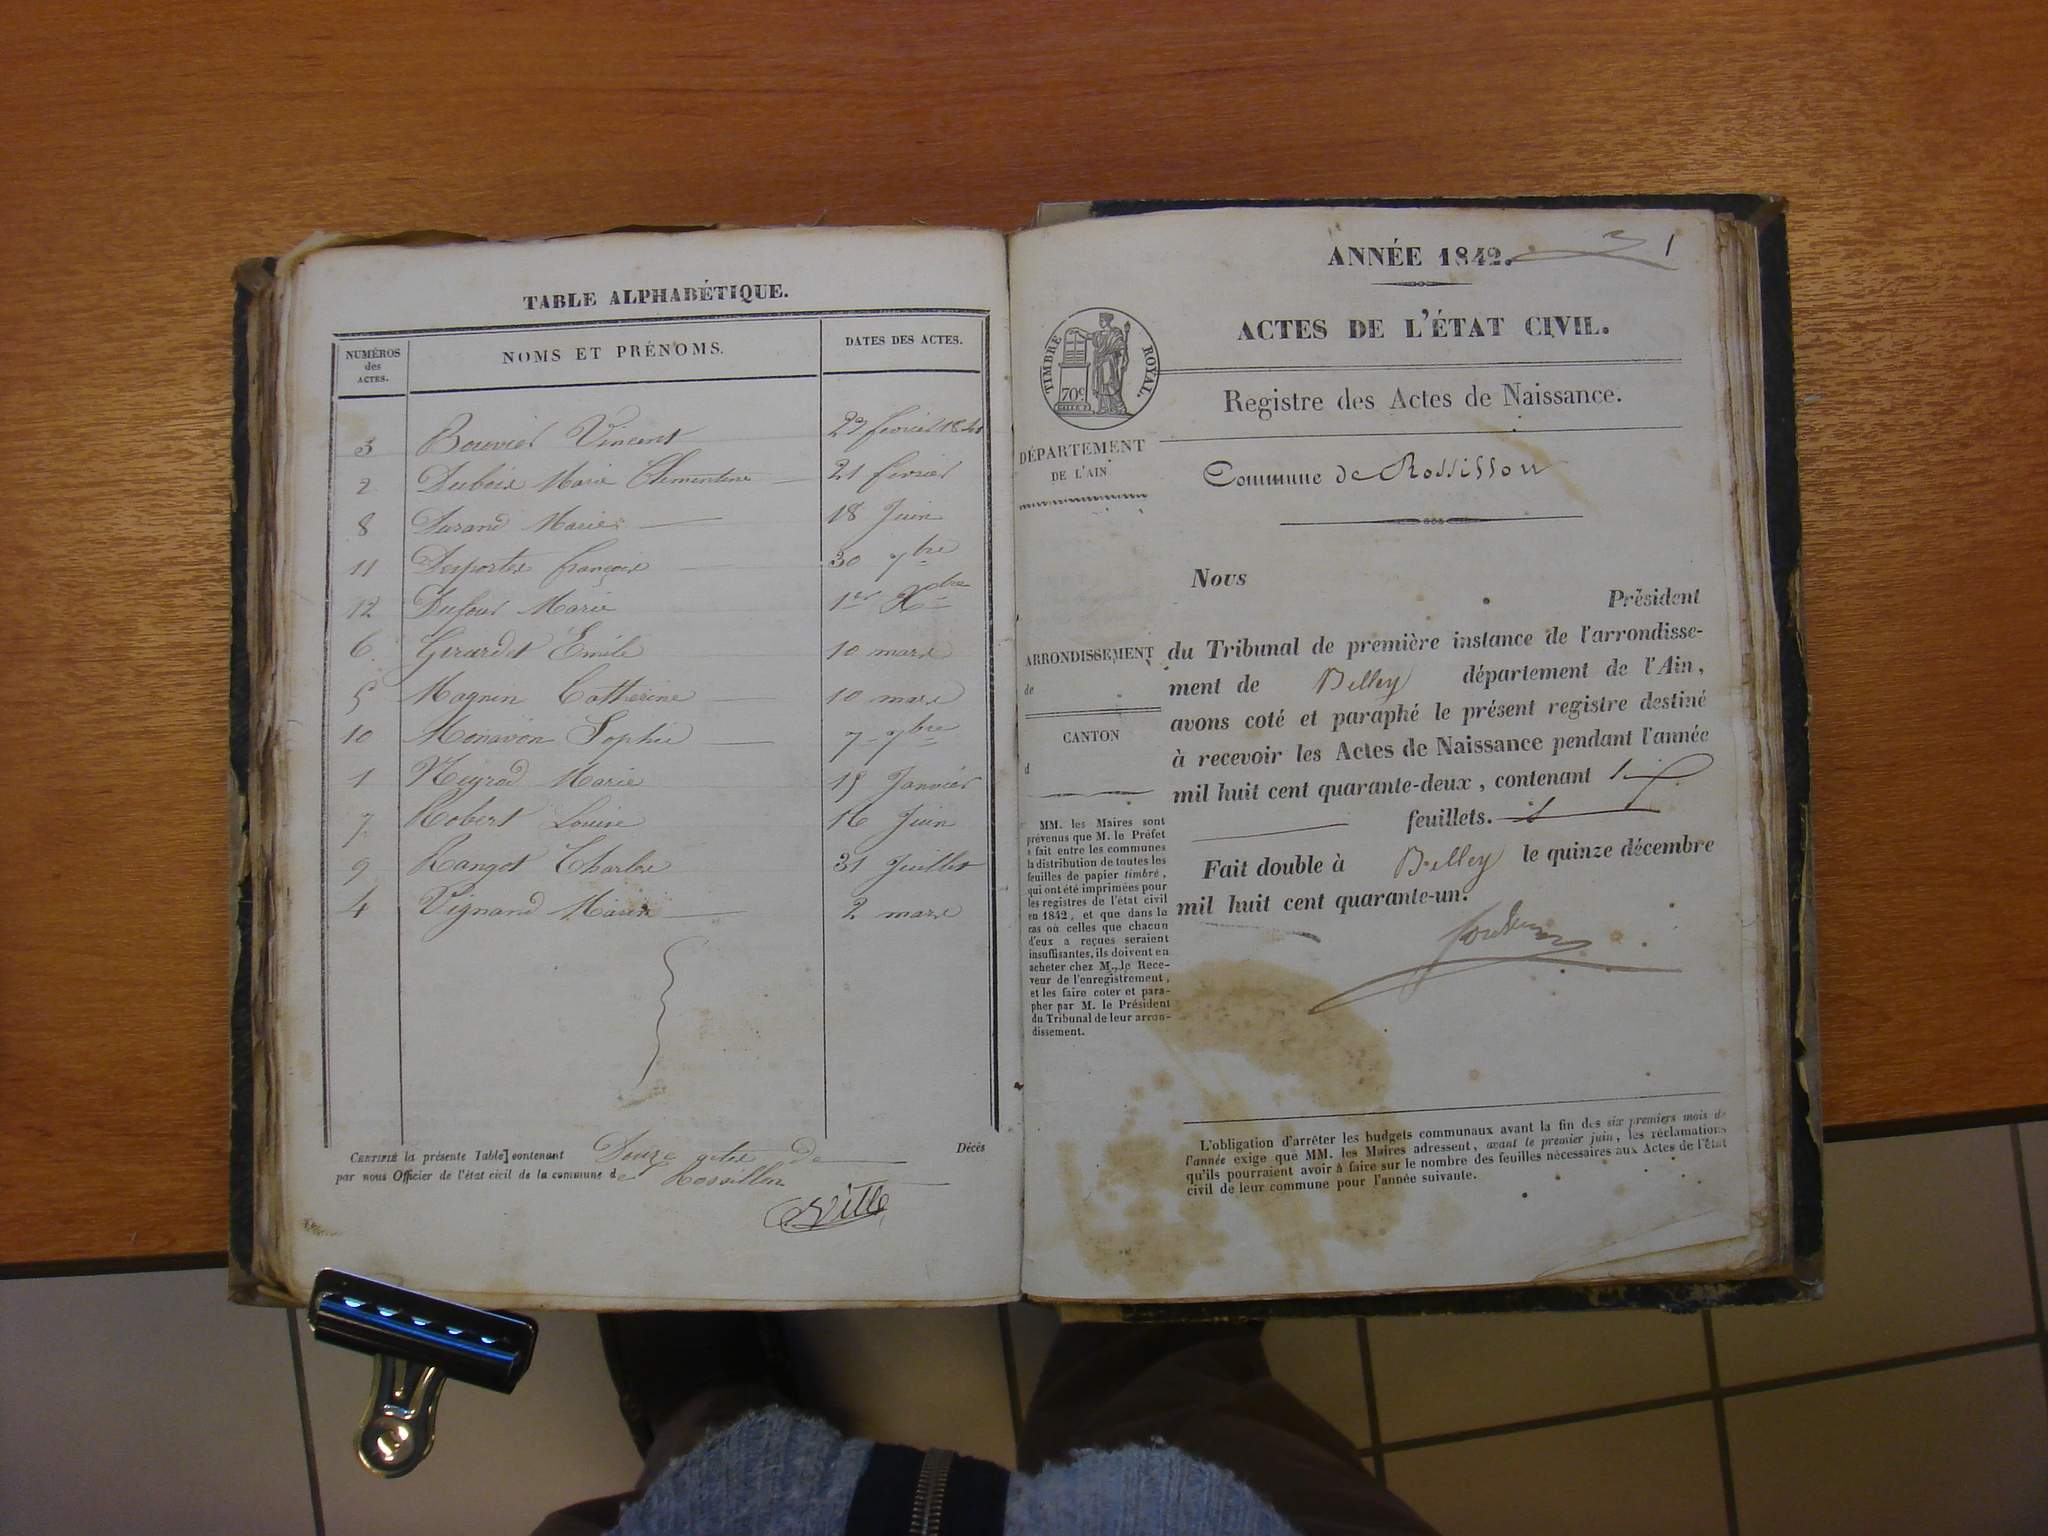 TABLE ALPHABÉTIQUE.
NUMÉROS des ACTES. NOMS ET PRÉNOMS. DATES DES ACTES.
3 Bouvier Vincent 22 février 1841
2 Dubois Marie Clementine 21 février
8 Durand Marie 18 Juin
11 Desportes françois 30 7bre
12 Dufour Marie 1er Xbre
6 Girardet Emile 10 mars
5 Magnin Catherine 10 mars
10 Monavon Sophie 7 7bre
1 Neyrod Marie 15 Janvier
7 Robert Louise 16 Juin
9 Rangot Charles 31 Juillet
4 Vignand Marie 2 mars
CERTIFIÉ la présente Table] contenant Douze actes de Décès
par nous Officier de l'état cicil de la commune de Rossillon
Ville
ANNÉE 1842. 1
ACTES DE L'ÉTAT CIVIL.
TIMBRE ROYAL.
70c
Registre des Actes de Naissance.
DÉPARTEMENT
DE L'AIN
Commune de Rossillon
Nous
Président
ARRONDISSEMENT
de
CANTON
d
du Tribunal de première instance de l'arrondisse-
ment de Belley département de l'Ain,
avons coté et paraphé le présent registre destiné
à recevoir les Actes de Naissance pendant l'année
mil huit cent quarante-deux, contenant
feuillets.
Fait double à Belley le quinze décembre
mil huit cent quarante-un.
MM. les Maires sont
prévenus que M. le Préfet
a fait entre les communes
la distribution de toutes les
feuilles de papier timbré,
qui ont été imprimées pour
les registres de l'état civil
en 1842, et que dans le
cas où celles que chacun
d'eux a reçues seraient
insuffisantes, ils doivent en
acheter chez M. le Rece-
veur de l'enregistrement,
et les faire coter et para-
pher par M. le Président
du Tribunal de leur arron-
dissement.
L'obligation d'arrêter les budgets communaux avant la fin des six premiers mois de
l'année exige que MM. les Maires adressent, avant le premier juin, les réclamations
qu'ils pourraient avoir à faire sur le nombre des feuilles nécessaires aux Actes de l'État
civil de leur commune pour l'année suivante.